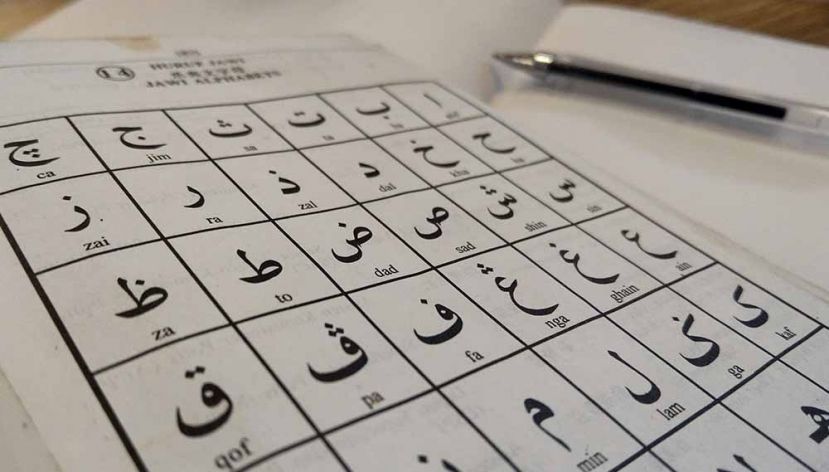 HURUF JAWI
JAWI ALPHABETS
ا ب ت ث ج چ
alif ba ta sa jim ca
ح خ د ذ ر ز
ha kha dal zal ra zai
س ش ص ض ط ظ
sin shin sad dad to za
ع غ ڠ ف ڤ ق
ain ghain nga fa pa qof
ک ݢ ل م
kaf ga lam mim